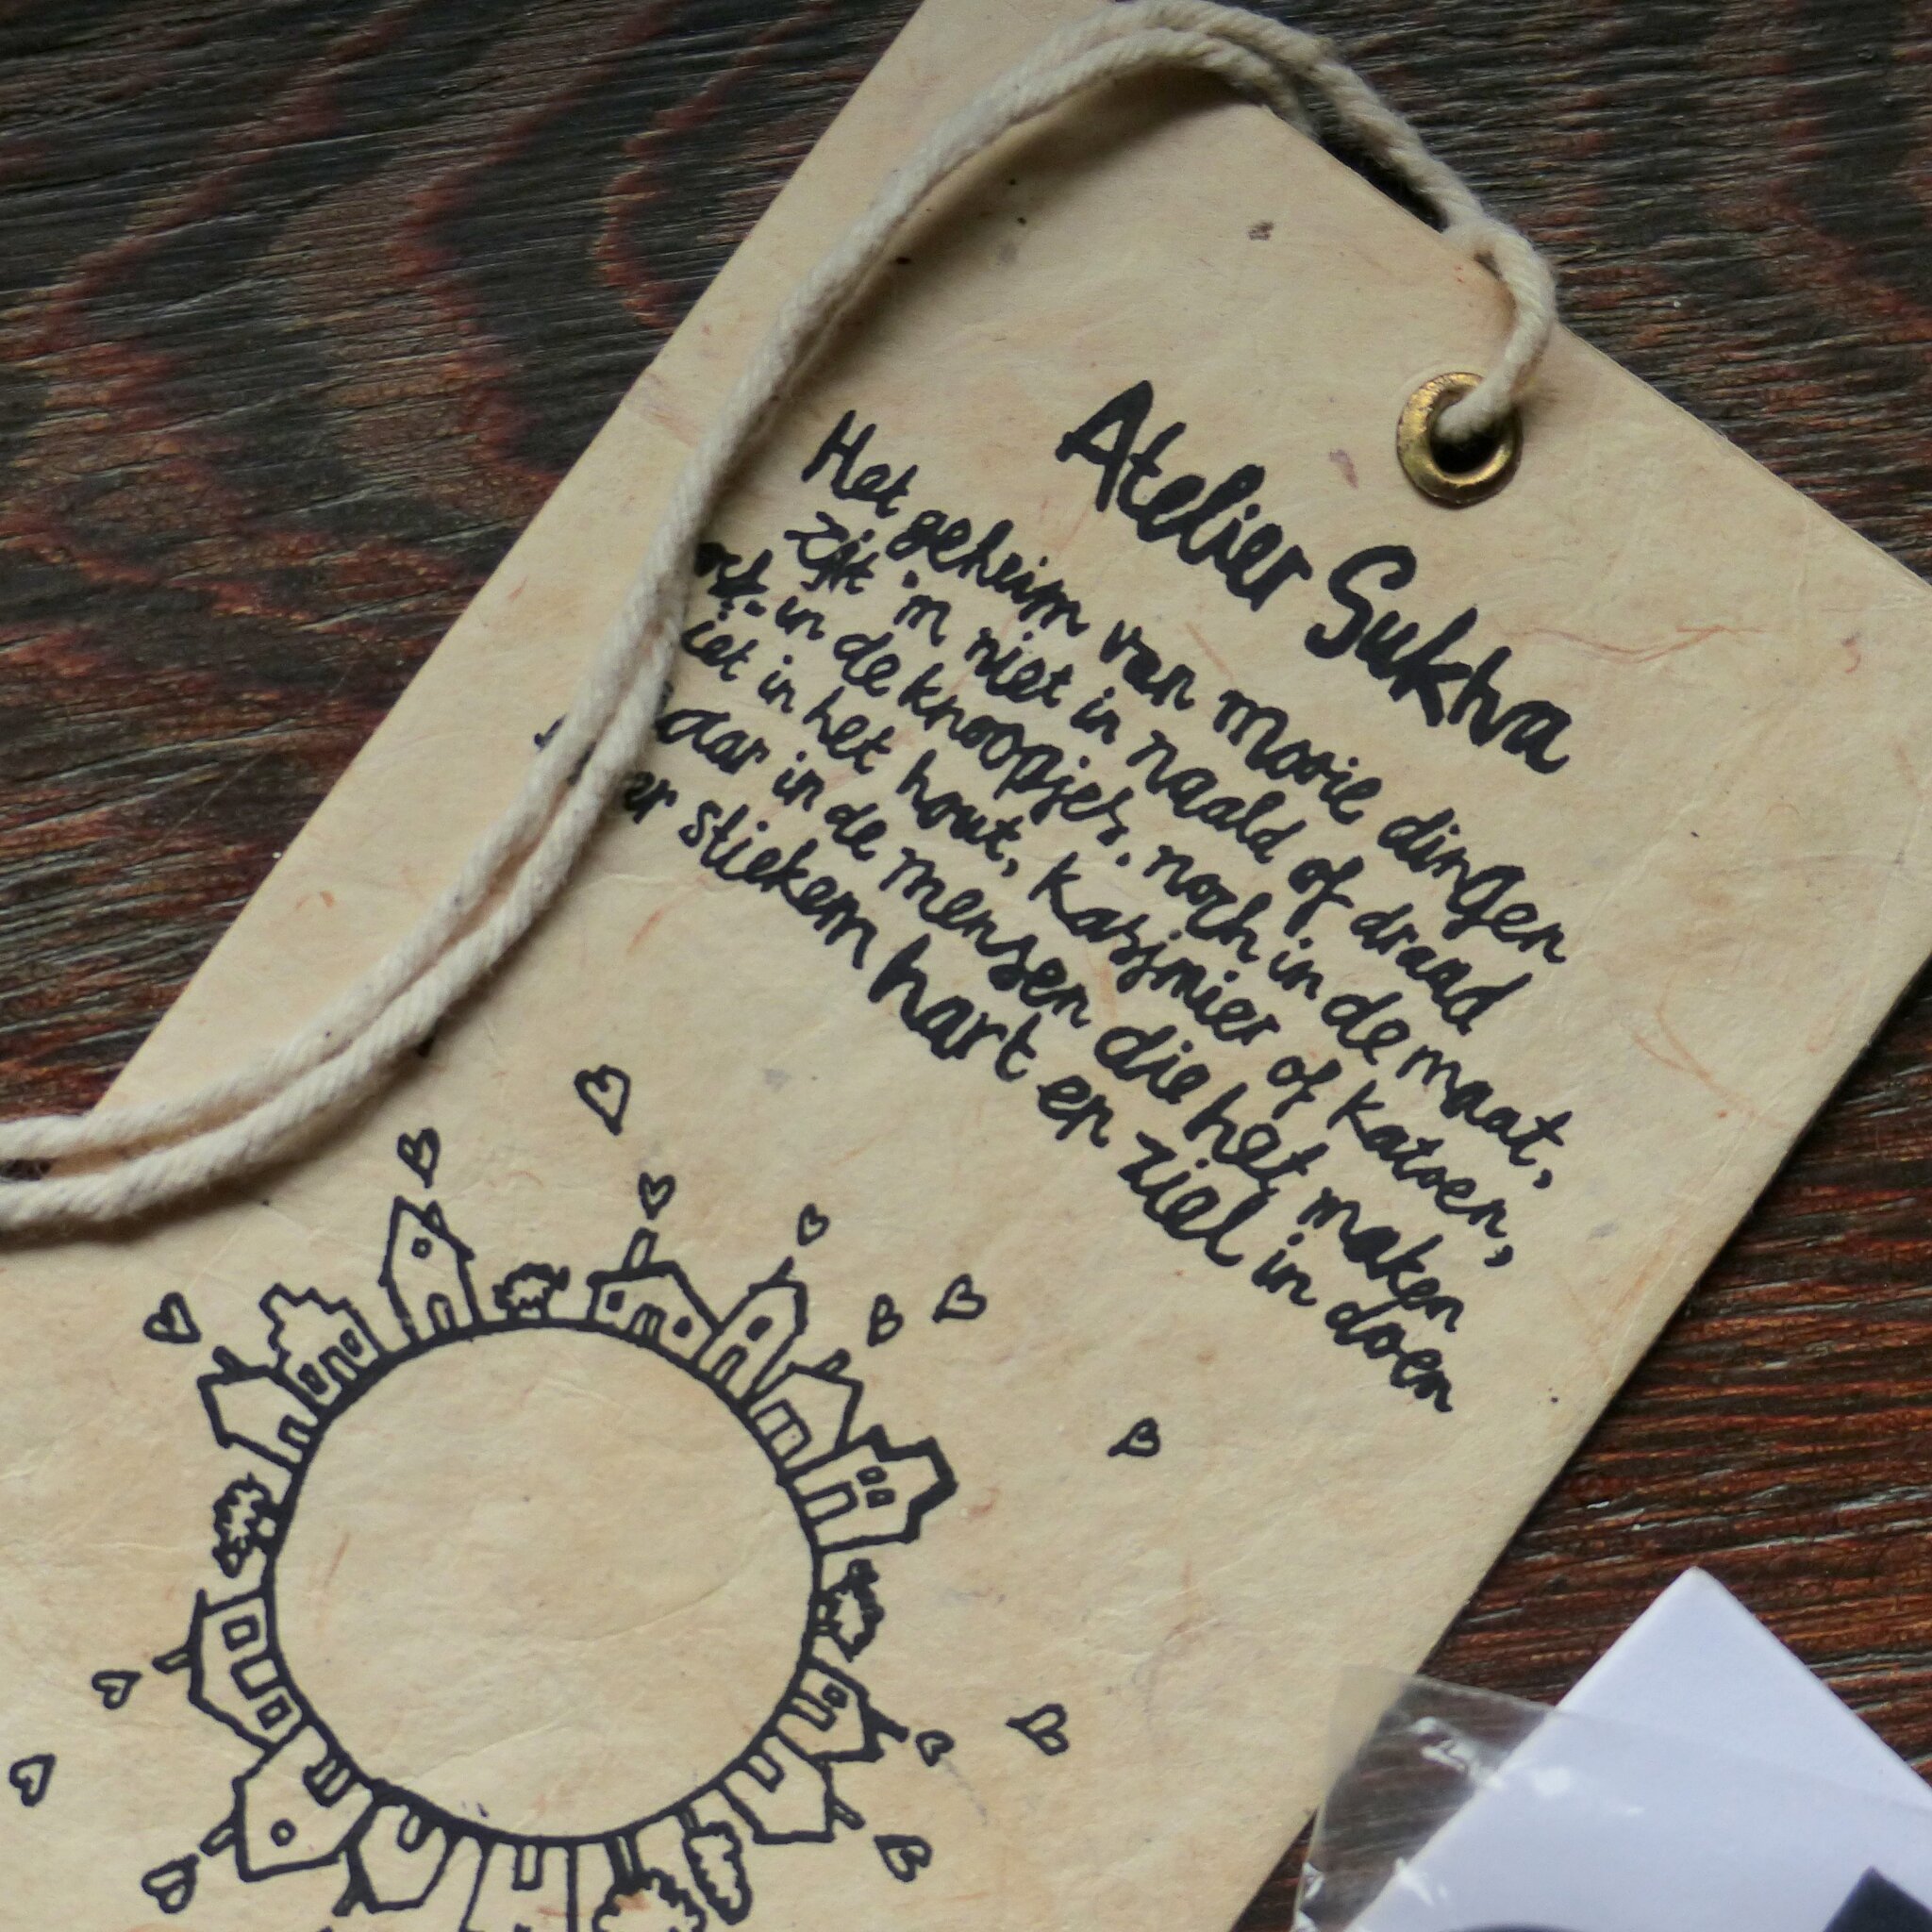 Atelier Sukha
Het geheim van mooie dingen
zit 'm niet in naald of draad
in de knoopjes, noch in de maat,
in het hout, kasjmier of katoen,
in de mensen die het maken
er stiekem hart en ziel in doen